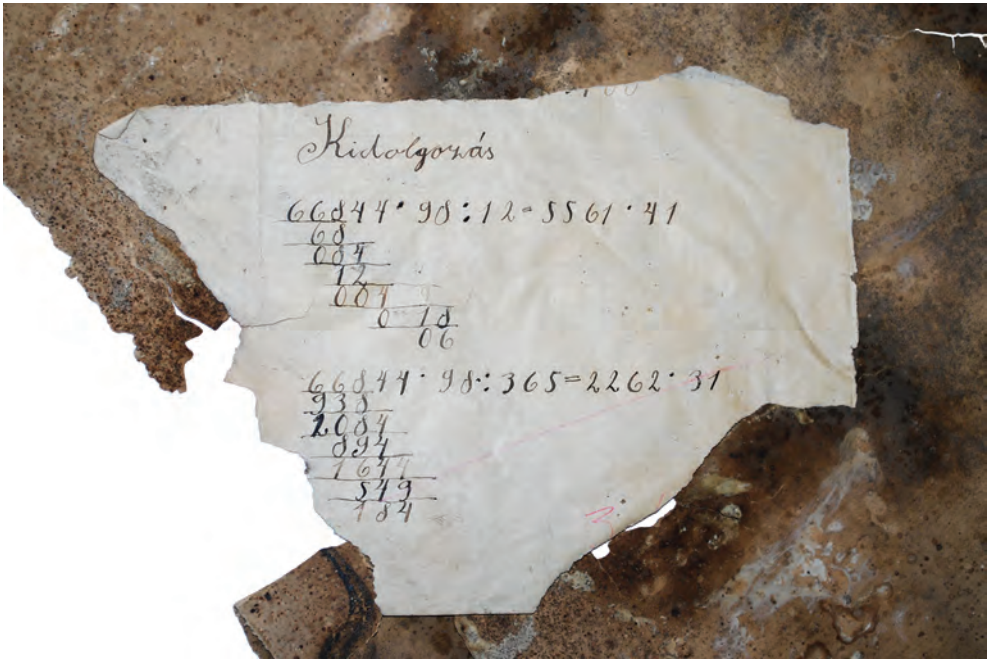 Kidolgozás
66844·98:12=5561·41
68
084
12
004
0 18
06
66844·98:365=2262·31
938
2084
894
1644
549
184